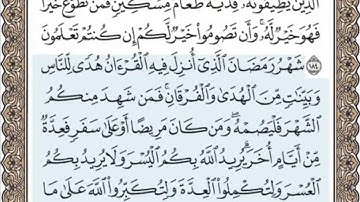 ٱلَّذِينَ يُطِيقُونَهُۥ فِدْيَةٌ طَعَامُ مِسْكِينٍ فَمَن تَطَوَّعَ خَيْرًا
فَهُوَ خَيْرٌ لَّهُۥ وَأَن تَصُومُوا۟ خَيْرٌ لَّكُمْ إِن كُنتُمْ تَعْلَمُونَ
﴿١٨٤﴾ شَهْرُ رَمَضَانَ ٱلَّذِىٓ أُنزِلَ فِيهِ ٱلْقُرْءَانُ هُدًى لِّلنَّاسِ
وَبَيِّنَٰتٍ مِّنَ ٱلْهُدَىٰ وَٱلْفُرْقَانِ فَمَن شَهِدَ مِنكُمُ
ٱلشَّهْرَ فَلْيَصُمْهُ وَمَن كَانَ مَرِيضًا أَوْ عَلَىٰ سَفَرٍ فَعِدَّةٌ
مِّنْ أَيَّامٍ أُخَرَ يُرِيدُ ٱللَّهُ بِكُمُ ٱلْيُسْرَ وَلَا يُرِيدُ بِكُمُ
ٱلْعُسْرَ وَلِتُكْمِلُوا۟ ٱلْعِدَّةَ وَلِتُكَبِّرُوا۟ ٱللَّهَ عَلَىٰ مَا